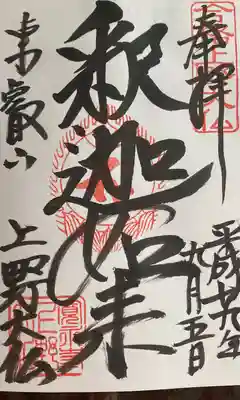 奉拝
平成廿九年
九月五日
釈迦如来
東叡山
上野大仏